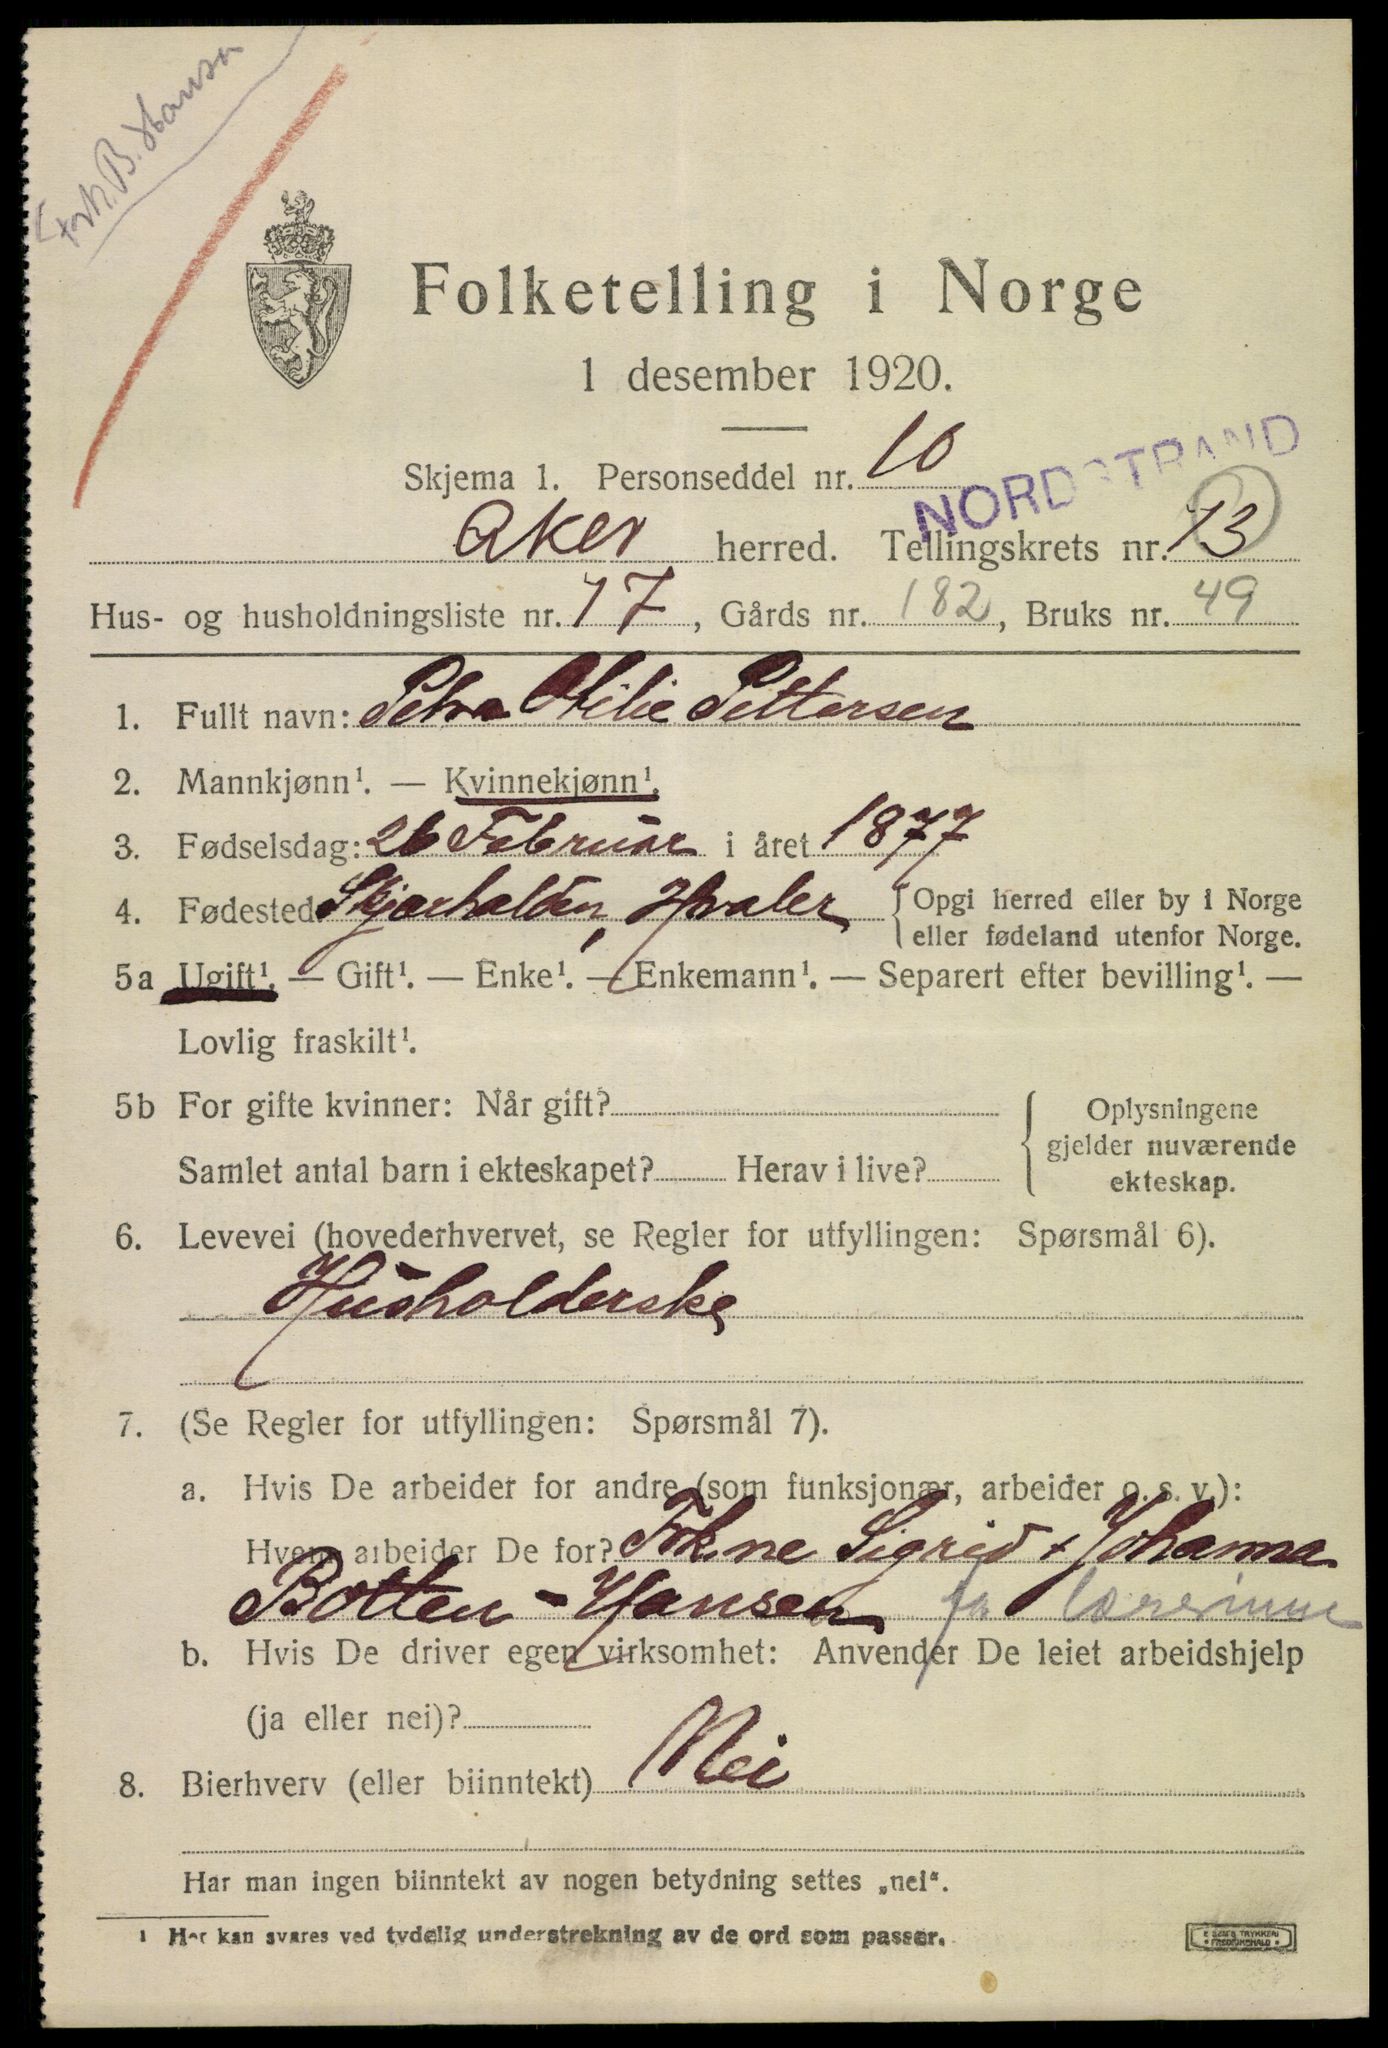 Frk. B. Hansen
Folketelling i Norge
1 desember 1920.
Skjema 1. Personseddel nr. 10
NORDSTRAND
Aker herred. Tellingskrets nr. 13
Hus- og husholdningsliste nr. 17, Gårds nr. 182, Bruks nr. 49
1. Fullt navn: Petra Otilie Pettersen
2. Mannkjønn¹. — Kvinnekjønn¹.
3. Fødselsdag: 26 Februar i året 1877
4. Fødested Skjærhalden, Hvaler { Opgi herred eller by i Norge
eller fødeland utenfor Norge.
5a Ugift¹. — Gift¹. — Enke¹. — Enkemann¹. — Separert efter bevilling¹. —
Lovlig fraskilt¹.
5b For gifte kvinner: Når gift? { Oplysningene
gjelder nuværende
Samlet antal barn i ekteskapet? Herav i live? ekteskap.
6. Levevei (hovederhvervet, se Regler for utfyllingen: Spørsmål 6).
Husholderske
7. (Se Regler for utfyllingen: Spørsmål 7).
a. Hvis De arbeider for andre (som funksjonær, arbeider o. s. v.):
Hvem arbeider De for? Frkne Sigrid + Johanna
Botten-Hansen lærerinne
b. Hvis De driver egen virksomhet: Anvender De leiet arbeidshjelp
(ja eller nei)?
8. Bierhverv (eller biinntekt) Nei
Har man ingen biinntekt av nogen betydning settes „nei“.
¹ Her kan svares ved tydelig understrekning av de ord som passer.
TRYKKERI
FREDRIKSHALD